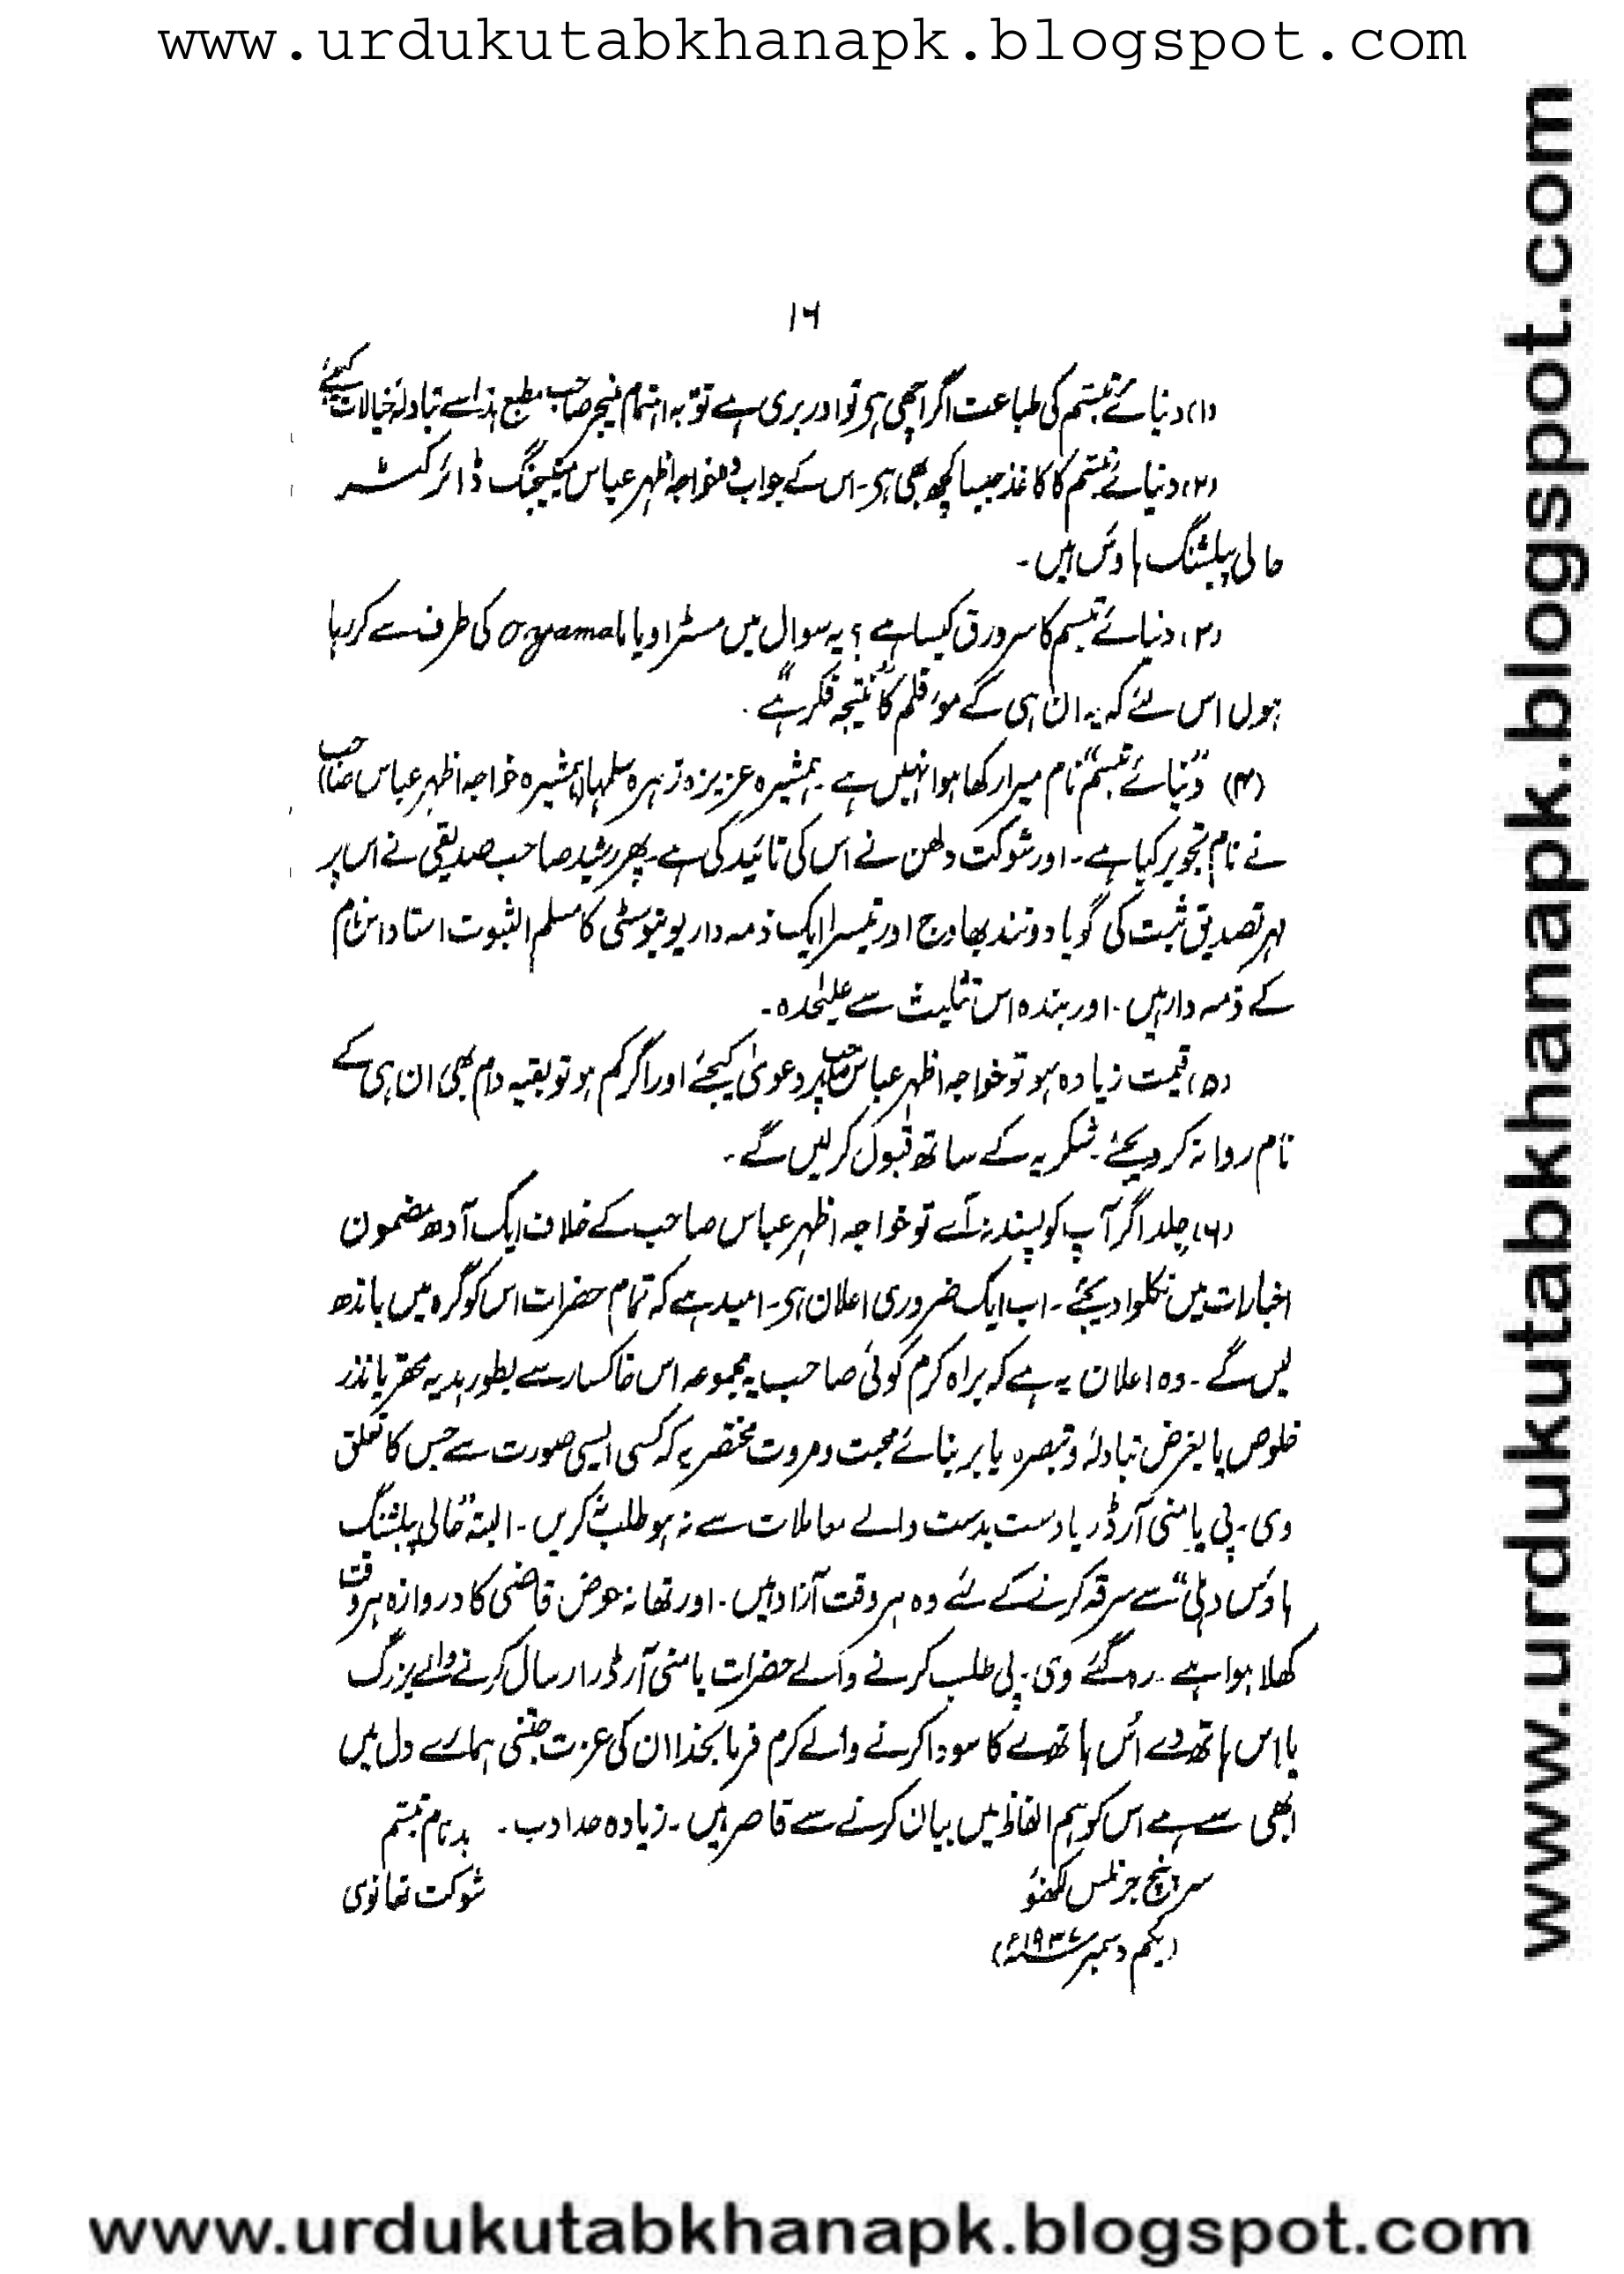 www.urdukutabkhanapk.blogspot.com
۱۶
(۱) دنیائے تبسم کی طباعت اگر اچھی ہی تو اور بری ہے تو بہ اہتمام منیجر صاحب مطبع ہذا سے تبادلۂ خیالات کیجئے
(۲) دنیائے تبسم کا کاغذ جیسا کچھ بھی ہی۔ اس کے جواب دہ خواجہ اظہر عباس منیجنگ ڈائرکٹر
حالی پبلشنگ ہاؤس ہیں۔
(۳) دنیائے تبسم کا سرورق کیسا ہے؟ یہ سوال میں مسٹر اویاما Oyama کی طرف سے کر رہا
ہوں اس لئے کہ یہ ان ہی کے موُ قلم کا "نتیجہ فکر ہے"۔
(۴) "دنیائے تبسم" نام میرا رکھا ہوا نہیں ہے۔ ہمشیرہ عزیزہ زہرہ سلمہا (ہمشیرہ خواجہ اظہر عباس صاحب)
نے نام تجویز کیا ہے۔ اور شوکت دلھن نے اس کی تائید کی ہے۔ پھر رشید صاحب صدیقی نے اس پر
مہر تصدیق ثبت کی گویا دو نند بھاوج اور تیسرا ایک ذمہ دار یونیوسٹی کا مسلم الثبوت استاد اس نام
کے ذمہ دار ہیں۔ اور بندہ اس تثلیث سے علیٰحدہ۔
(۵) قیمت زیادہ ہو تو خواجہ اظہر عباس صاحب پر دعویٰ کیجئے اور اگر کم ہو تو بقیہ دام بھی ان ہی کے
نام روانہ کر دیجئے۔ شکریہ کے ساتھ قبول کر لیں گے۔
(۶) جلد اگر آپ کو پسند نہ آے تو خواجہ اظہر عباس صاحب کے خلاف ایک آدھ مضمون
اخبارات میں نکلوا دیجئے۔ اب ایک ضروری اعلان ہی۔ امید ہے کہ تمام حضرات اس کو گرہ میں باندھ
لیں گے۔ وہ اعلان یہ ہے کہ براہ کرم کوئی صاحب یہ مجموعہ اس خاکسار سے بطور ہدیہ محقر یا نذر
خلوص یا بغرض تبادلہ و تبصرہ یا بر بنائے محبت و مروت مختصر یہ کہ کسی ایسی صورت سے جس کا تعلق
وی۔ پی یا منی آرڈر یا دست بدست والے معاملات سے نہ ہو طلب نہ کریں۔ البتہ "حالی پبلشنگ
ہاؤس دہلی" سے سرقہ کرنے کے لئے وہ ہر وقت آزاد ہیں۔ اور تھانہ حوض قاضی کا دروازہ ہر وقت
کھلا ہوا ہے۔ رہ گئے وی۔ پی طلب کرنے والے حضرات یا منی آرڈر ارسال کرنے والے بزرگ
یا اِس ہاتھ دے اُس ہاتھ لے کا سودا کرنے والے کرم فرما بخدا ان کی عزت جتنی ہمارے دل میں
ابھی سے ہے اس کو ہم الفاظ میں بیان کرنے سے قاصر ہیں۔ زیادہ حد ادب۔ بدنام تبسم
سرپنچ جرنلس لکھنؤ
شوکت تھانوی
(یکم دسمبر ۱۹۳۷ء)
www.urdukutabkhanapk.blogspot.com
www.urdukutabkhanapk.blogspot.com